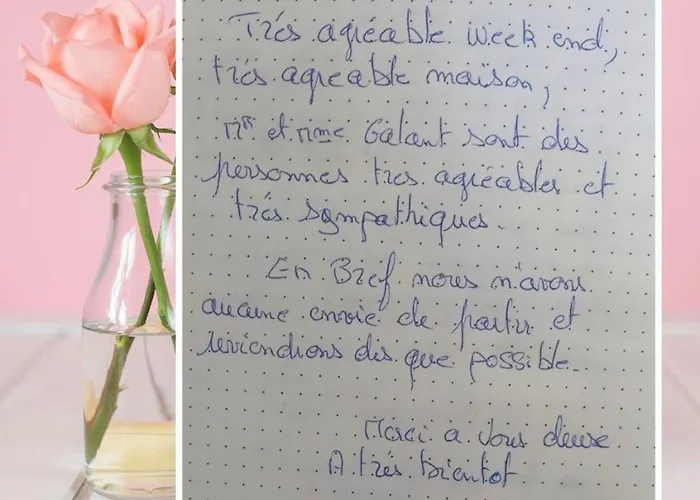 Très agréable week end,
très agréable maison,
Mr et Mme Galant sont des
personnes très agréables et
très sympathiques.
En Bref nous n'avons
aucune envie de partir et
reviendrons dès que possible.
Merci a vous deux
A très bientot